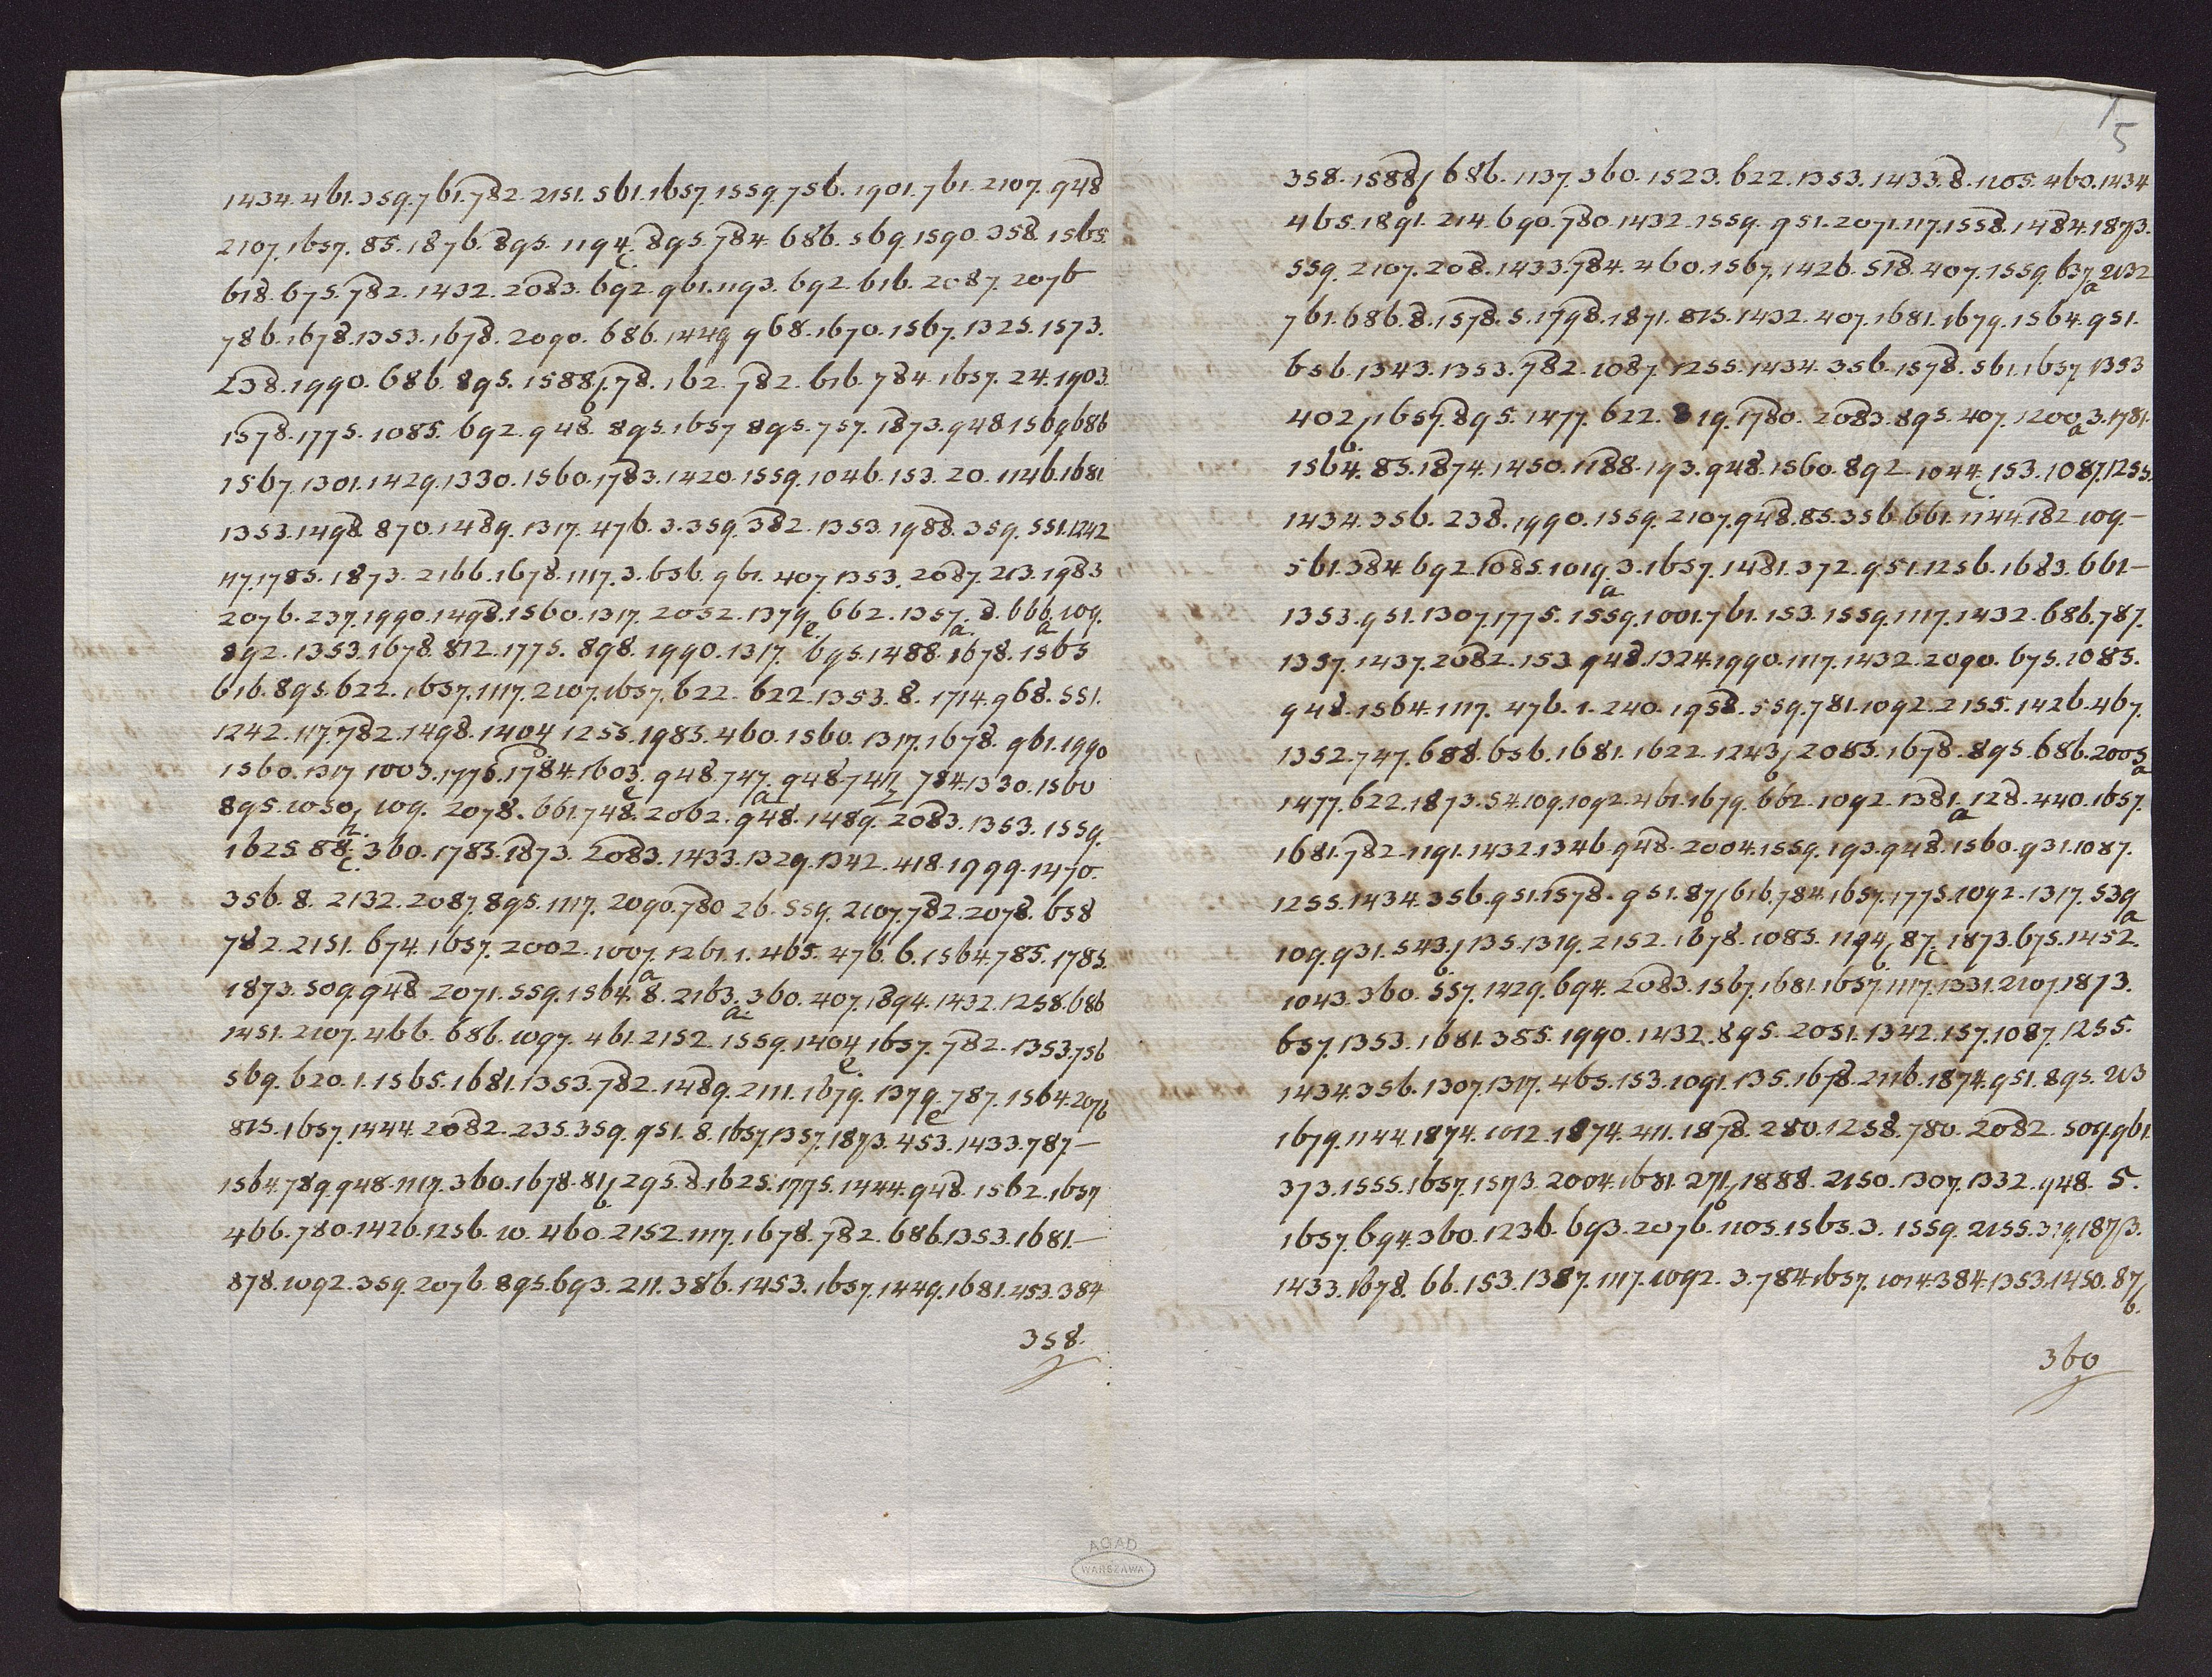 1434.461.359.761.782.2151.561.1657.1559.756.1901.761.2107.948
2107.1657.85.1876.895.1194.c.895.784.686.569.1590.358.1565.
618.675.782.1432.2083.692.961.1193.692.616.2087.2076
786.1678.1353.1678.2090.686.1449.968.1670.1567.1325.1573.
238.1990.686.895.1588/b.78.162.782.616.784.1657.24.1903.
1578.1775.1085.692.948.895.1657.895.757.1873.948.1569.686
1567.1301.1429.1330.1560.1783.1420.1559.1046.153.20.1146.1681
1353.1498.870.1489.1317.476.3.359.382.1353.1988.359.551.1242
117.1785.1873.2166.1678.1117.3.656.961.407.1353.2087.213.1983
2076.237.1990.1498.1560.1317.2052.1379.e.662.1357.a.8.666.a.109.
892.1353.1678.812.1775.898.1990.1317.695.1488.1678.1565
616.895.622.1657.1117.2107.1657.622.622.1353.8.1714.968.551.
1242.117.782.1498.1404.1255.1985.460.1560.1317.1678.961.1990
1560.1317.1003.1776.1784.1603.e.948.747.a.948.747/z.784.1330.1560
895.1050/h.109.2078.661.748.2062.948.1489.2083.1353.1559.
1625.88.c.360.1783.1873.2083.1433.1329.1342.418.1999.1470.
356.8.2132.2087.895.1117.2090.780.26.559.2107.782.2078.658
782.2151.674.1657.2002.1007.a.1261.1.465.476.6.1564.785.1785.
1873.509.948.2071.559.1564.8.2163.a.360.407.1894.1432.1258.686
1451.2107.466.686.1097.461.2152.1559.1404.e.1657.782.1353.756
569.620.1.1565.1681.1353.782.1489.2111.1679.1379.e.787.1564.2076
815.1657.1444.2082.235.359.951.8.1657.1357.1873.453.1433.787—
1564.789.948.1117.360.1678.81/b.295.8.1625.1775.1444.948.1562.1657
466.780.1426.1256.10.460.2152.1117.1678.782.686.1353.1681.—
878.1092.359.2076.895.693.211.386.1453.1657.1449.1681.453.384
358.
1
5
358.1588/b.686.1137.360.1523.622.1353.1433.8.1105.460.1434
465.1891.214.690.780.1432.1559.951.2071.117.1558.1484.1873.
559.2107.208.1433.784.460.1567.1426.518.407.1559.637.a.2132
761.686.8.1578.5.1798.1871.815.1432.407.1681.1679.1564.951.
656.1343.1353.782.1087.1255.1434.356.1578.561.1657.1353
402/b.1657.895.1477.622.819.1780.2083.895.407.1200.a.3.1781.
1564.85.1874.1450.1188.193.948.1560.892.1044.c.153.1087.1255.
1434.356.238.1990.1559.2107.948.85.356.661.1144.182.109.—
561.384.692.1085.1019.a.3.1657.1481.372.951.1256.1683.661—
1353.951.1307.1775.1559.1001.761.153.1559.1117.1432.686.787.
1357.1437.2082.153.948.1324.1990.1117.1432.2090.675.1085.
948.1564.1117.476.1.240.1958.559.781.1092.2155.1426.467.
1352.747.688.656.1681.1622.1243/b.2085.1678.895.686.2005.a
1477.622.1873.54.109.1092.461.1679.662.1092.1381.a.128.440.1657.
1681.782.1191.1432.1346.948.2004.1559.193.948.1560.931.1087.
1255.1434.356.951.1578.951.87/b.616.784.1657.1775.1092.1317.539.a
109.931.543/b.1135.1319.2152.1678.1085.1194/b.87.c.1873.675.1452.
1043.360.557.1429.694.2083.1567.1681.1657.1117.1331.2107.1873.
657.1353.1681.385.1990.1432.895.2051.1342.157.1087.1255.
1434.356.1307.1317.465.153.1091.135.1678.2116.1874.951.895.213
1679.1144.1874.1012.1874.411.1878.280.1258.780.2082.509.961.
373.1555.1657.1573.2004.1681.271/b.1888.2150.1307.1332.948.5.
1657.694.360.1236.693.2076.1105.1565.3.1559.2155.319.1873.
1433.1678.66.153.1387.1117.1092.3.784.1657.1014.384.1353.1450.87/b.
360
AGAD
WARSZAWA